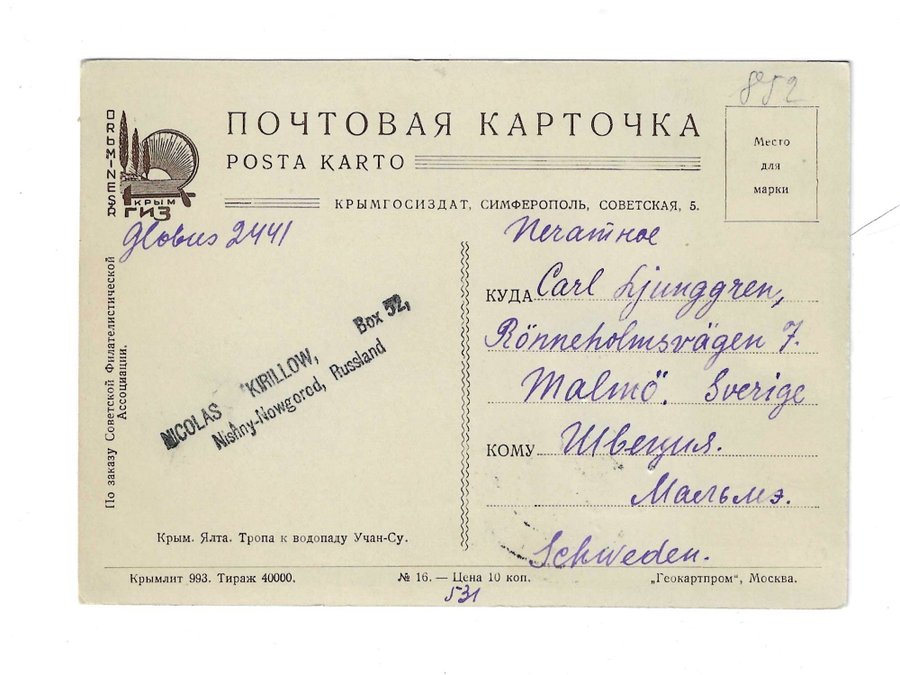 852
ПОЧТОВАЯ КАРТОЧКА
POSTA KARTO
Место
для
марки
КРЫМ
ГИЗ
КРЫМГОСИЗДАТ, СИМФЕРОПОЛЬ, СОВЕТСКАЯ, 5.
Globus 2441
Печатное
КУДА Carl Ljunggren,
Rönneholmsvägen 7.
Malmö. Sverige
КОМУ Швеция.
Мальмэ.
Schweden.
NICOLAS KIRILLOW, Box 52,
Nishny-Nowgorod, Russland
По заказу Советской Филателистической
Ассоциации.
Крым. Ялта. Тропа к водопаду Учан-Су.
Крымлит 993. Тираж 40000.
№ 16. — Цена 10 коп.
„Геокартпром", Москва.
531